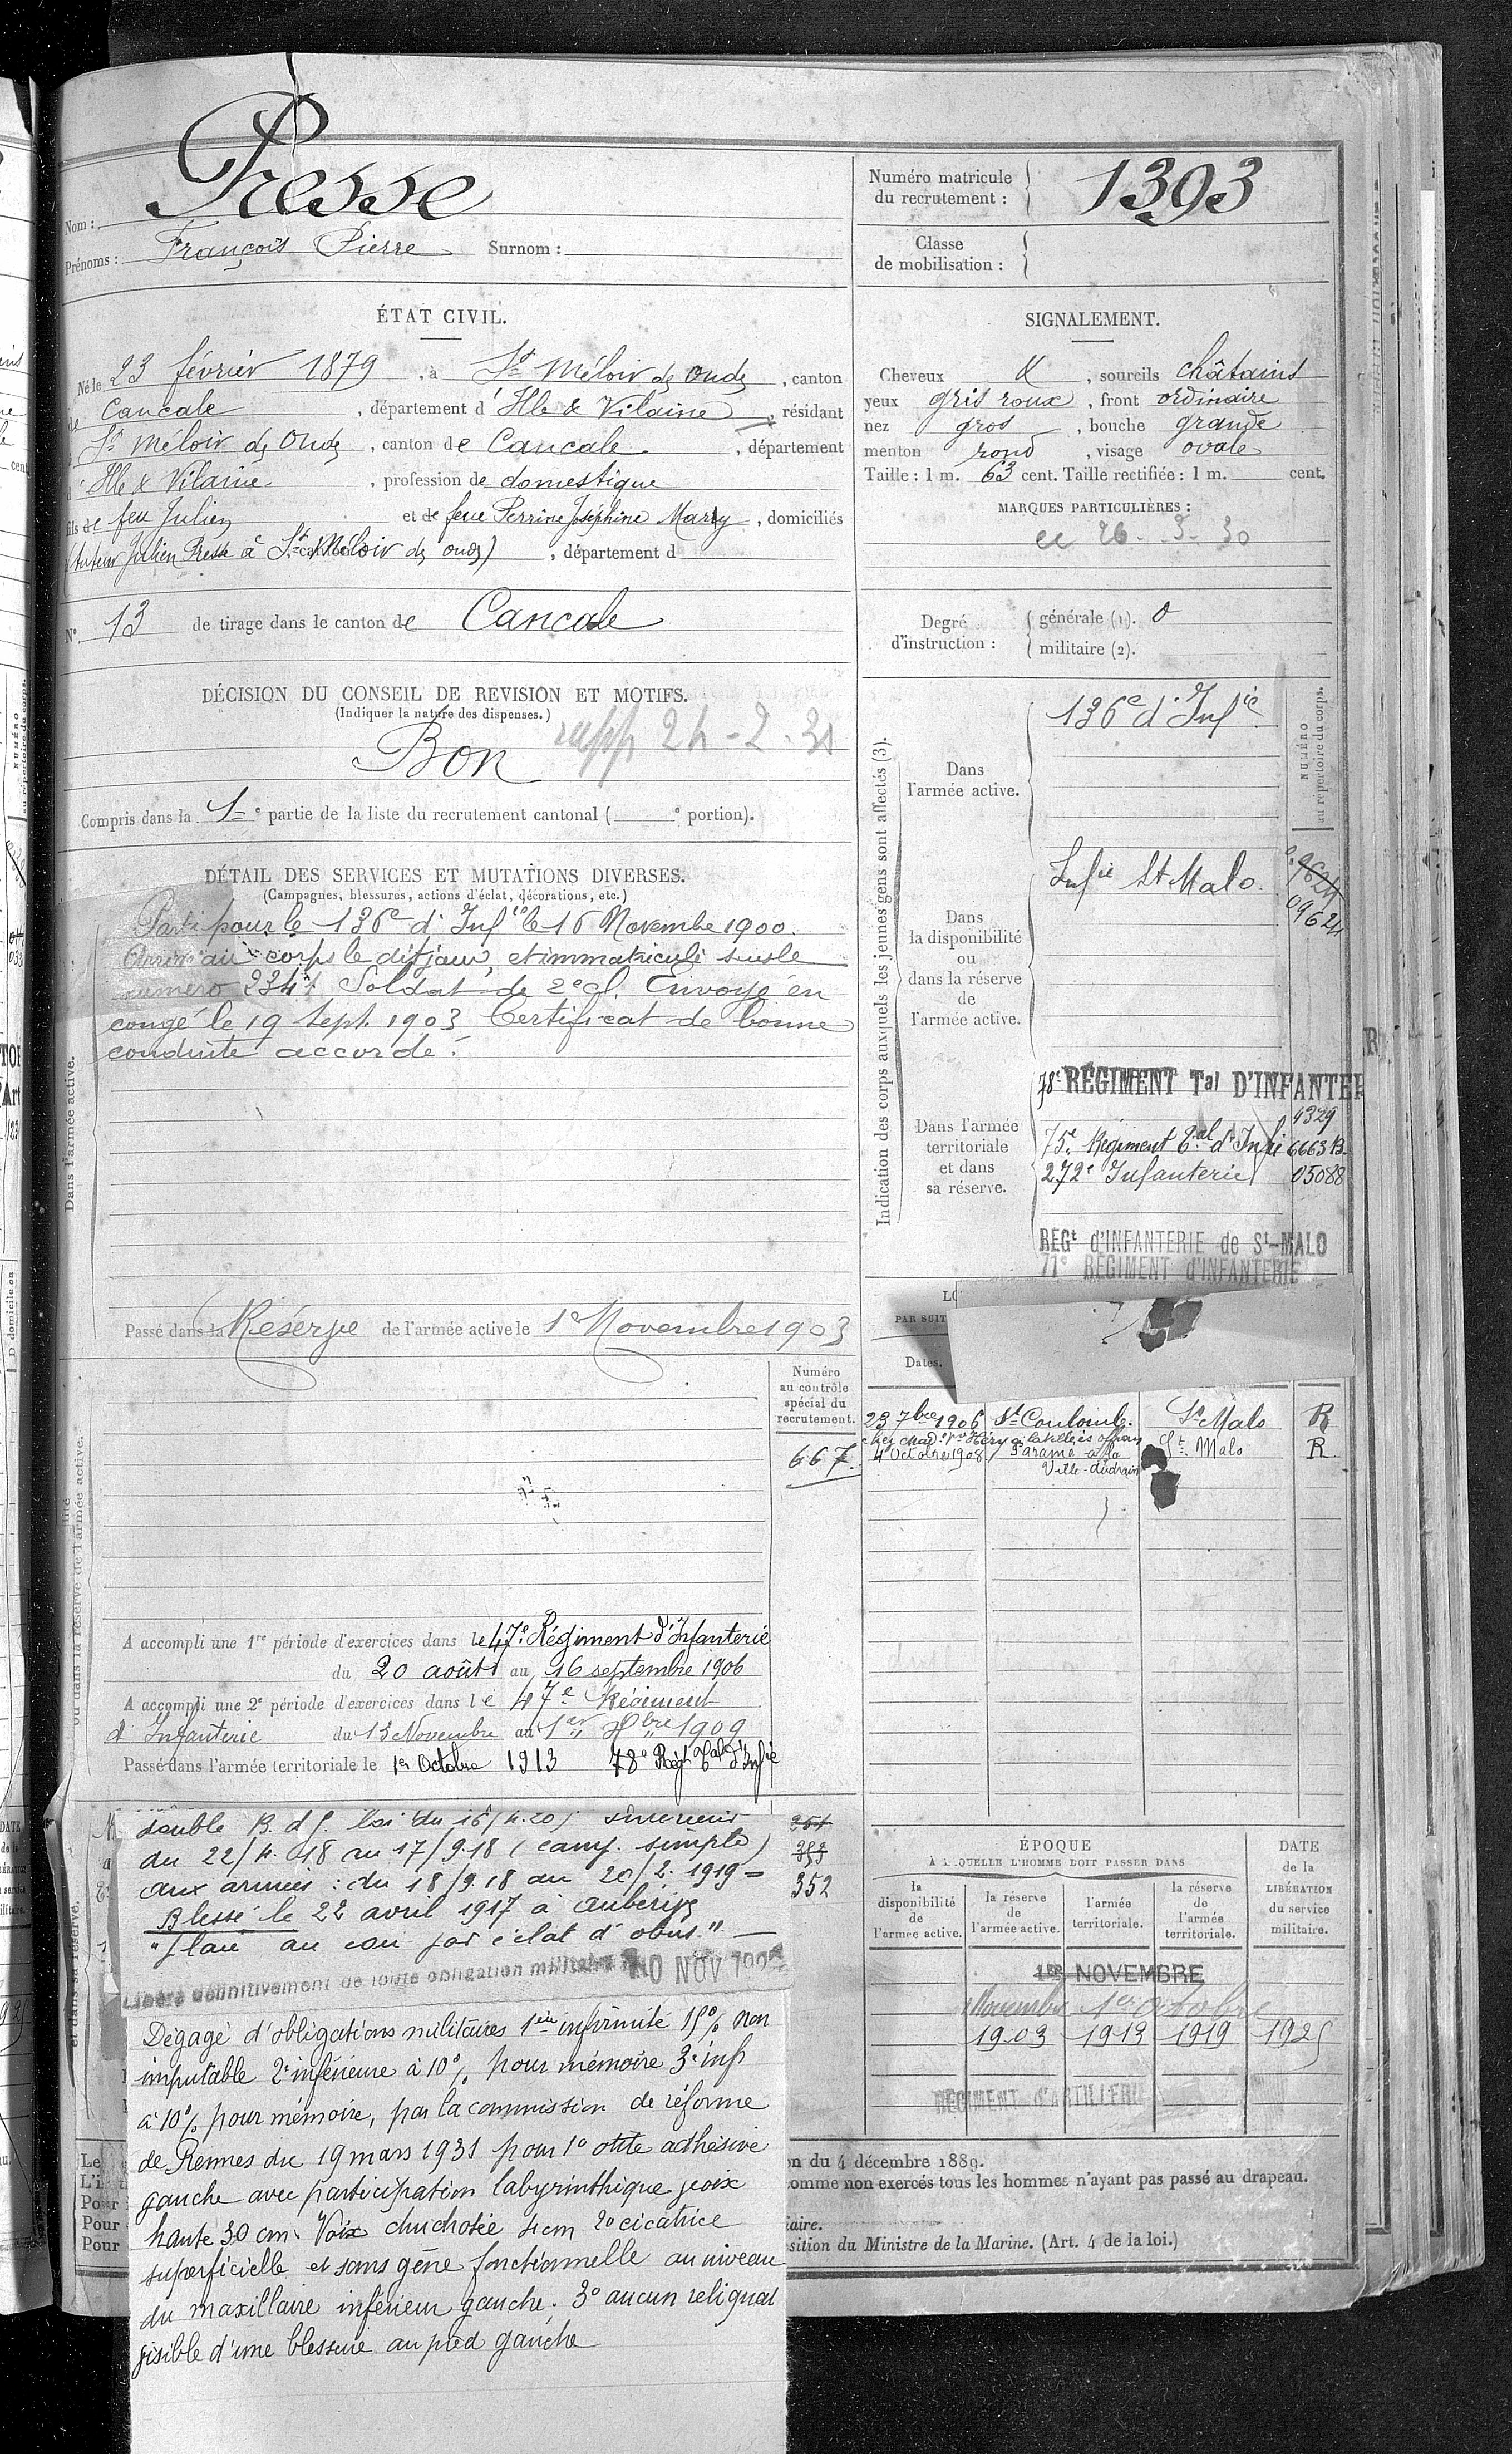 Nom : Presse
Prénoms : François Pierre Surnom :
Numéro matricule
du recrutement : 1393
Classe
de mobilisation :
ÉTAT CIVIL.
Né le 23 février 1879, à St Méloir des Ondes, canton
de Cancale, département d'Ille & Vilaine, résidant
St Méloir des Ondes, canton de Cancale, département
d'Ille & Vilaine, profession de domestique
fils de feu Julien et de feue Perrine Joséphine Mary, domiciliés
(tuteur Julien Presse à St Méloir des ondes), département d
N° 13 de tirage dans le canton de Cancale
SIGNALEMENT.
Cheveux &, sourcils châtains
yeux gris roux, front ordinaire
nez gros, bouche grande
menton rond, visage ovale
Taille : 1 m. 63 cent. Taille rectifiée : 1 m. cent.
MARQUES PARTICULIÈRES :
Degré
d'instruction :
générale (1). 0
militaire (2).
DÉCISION DU CONSEIL DE REVISION ET MOTIFS.
(Indiquer la nature des dispenses.)
Bon
Compris dans la 1e partie de la liste du recrutement cantonal ( e portion).
DÉTAIL DES SERVICES ET MUTATIONS DIVERSES.
(Campagnes, blessures, actions d'éclat, décorations, etc.)
Dans l'armée active.
Parti pour le 136e d'Infie le 16 Novembre 1900.
Arrivé au corps le dit jour, et immatriculé sous le
numéro 2347. Soldat de 2e cl. Envoyé en
congé le 19 Sept. 1903 Certificat de bonne
conduite accordé.
Passé dans la Réserve de l'armée active le 1e Novembre 1903
Indication des corps auxquels les jeunes gens sont affectés (3).
NUMÉRO
au répertoire du corps.
Dans
l'armée active.
136e d'Infie
Dans
la disponibilité
ou
dans la réserve
de
l'armée active.
Infie St Malo.
09624
Dans l'armée
territoriale
et dans
sa réserve.
78e RÉGIMENT Tal D'INFANTER
4329
75e Régiment Tal d'Infie 6663 B
272e Infanterie 05088
REGt d'INFANTERIE de St-MALO
71e RÉGIMENT d'INFANTERIE
PAR SUIT
Dates.
23 7bre 1906 St Coulomb. St Malo R
4 Octobre 1908 Paramé à la St Malo R
Numéro
au contrôle
spécial du
recrutement.
667.
ou dans la réserve de l'armée active.
A accompli une 1re période d'exercices dans le 47e Régiment d'Infanterie
du 20 août au 16 septembre 1906
A accompli une 2e période d'exercices dans le 47e Régiment
d'Infanterie du 15 Novembre au 1er Xbre 1909
Passé dans l'armée territoriale le 1er Octobre 1913 78e Régt Tal d'Infie
et dans sa réserve.
double B. d G. loi du 16/4.20)
du 22/4.18 au 17/9.18 (camp. simple)
aux armées : du 18/9.18 au 20/2.1919 =
352
Blessé le 22 avril 1917 à Auberive
"plaie au cou par éclat d'obus." —
Libéré définitivement de toute obligation militaire 10 NOV
Dégagé d'obligations militaires 1ère infirmité 15% non
imputable 2e inférieure à 10% pour mémoire 3e inf
à 10% pour mémoire, par la commission de réforme
de Rennes du 19 mars 1931 pour 1° otite adhésive
gauche avec participation labyrinthique voix
haute 30 cm. Voix chuchotée 4 cm 2° cicatrice
superficielle et sans gêne fonctionnelle au niveau
du maxillaire inférieur gauche. 3° aucun reliquat
visible d'une blessure au pied gauche
ÉPOQUE
À LAQUELLE L'HOMME DOIT PASSER DANS
DATE
de la
LIBÉRATION
du service
militaire.
la
disponibilité
de
l'armée active.
la réserve
de
l'armée active.
l'armée
territoriale.
la réserve
de
l'armée
territoriale.
1ER NOVEMBRE
1 Novembre 1er octobre
1903 1913 1919 1925
RÉGIMENT D'ARTILLERIE
on du 4 décembre 1889.
comme non exercés tous les hommes n'ayant pas passé au drapeau.
iaire.
sition du Ministre de la Marine. (Art. 4 de la loi.)